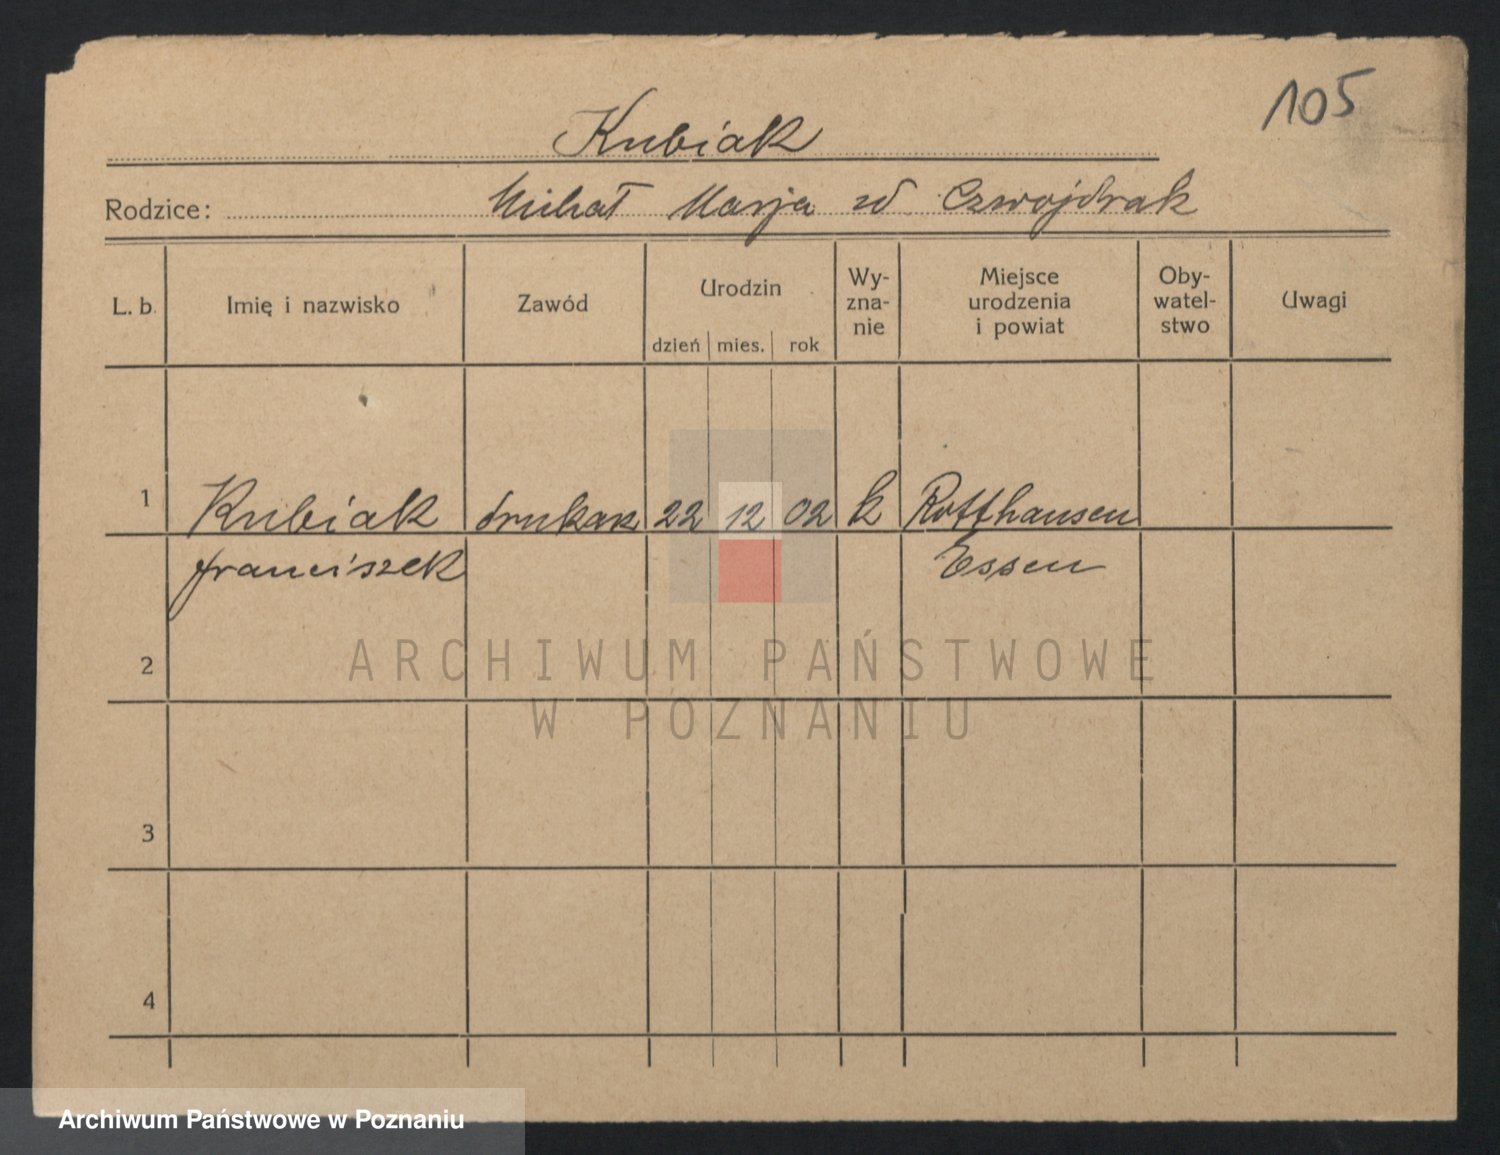 105
Kubiak
Rodzice: Michał Marja zd Czwojdrak
L. b. Imię i nazwisko Zawód Urodzin dzień mies. rok Wy-zna-nie Miejsce urodzenia i powiat Oby-watel-stwo Uwagi
1 Kubiak drukarz 22 12 02 k Rotthausen
franciszek Essen
2
ARCHIWUM PAŃSTWOWE
W POZNANIU
3
4
Archiwum Państwowe w Poznaniu